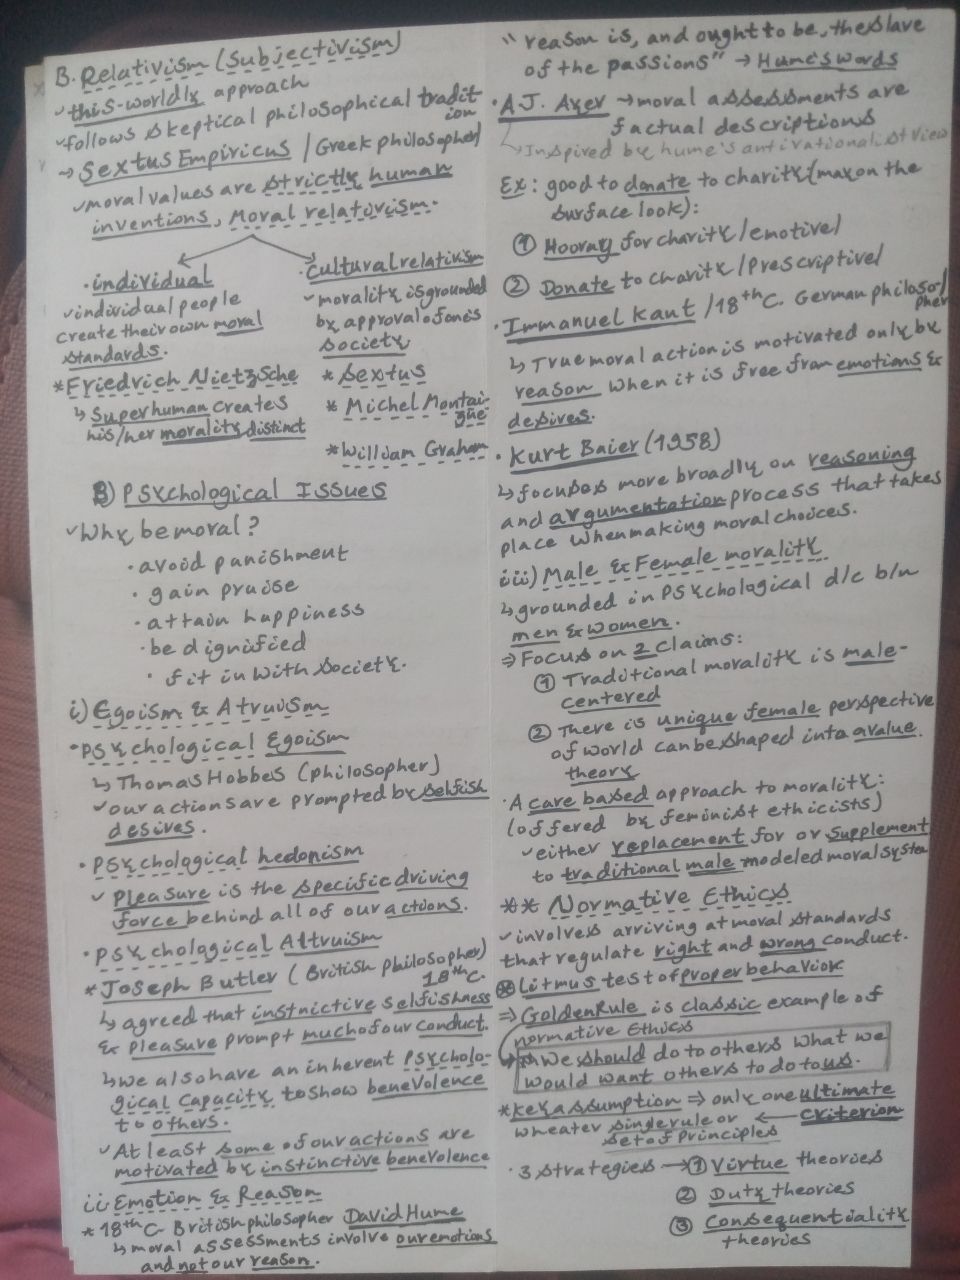 B. Relativism (Subjectivism)
✓this-worldly approach
✓follows skeptical philosophical tradit
ion
→ Sextus Empiricus / Greek philosopher/
✓moral values are strictly human
inventions, Moral relativism.
• individual
✓individual people
create their own moral
standards.
* Friedrich Nietzsche
↳ Superhuman creates
his/her morality distinct
• Cultural relativism
✓morality is grounded
by approval of one's
society
* Sextus
* Michel Montai-
gne
* William Graham
B) Psychological Issues
✓Why be moral?
• avoid punishment
• gain praise
• attain happiness
• be dignified
• fit in with society.
i) Egoism & Atruism
• psychological Egoism
↳ Thomas Hobbes (philosopher)
✓our actions are prompted by selfish
desires.
• psychological hedonism
✓ Pleasure is the specific driving
force behind all of our actions.
• psychological Altruism
* Joseph Butler (British philosopher)
18th C.
↳ agreed that instnictive selfishness
& pleasure prompt much of our conduct.
↳ we also have an inherent Psycholo-
gical capacity to show benevolence
to others.
✓ At least some of our actions are
motivated by instinctive benevolence
ii Emotion & Reason
* 18th C British philosopher David Hume
↳ moral assessments involve our emotions
and not our reason.
" reason is, and ought to be, the slave
of the passions" → Hume's words
• A.J. Ayer → moral assessments are
factual descriptions
↳ Inspired by hume's antirationalist view
Ex: good to donate to charity (may on the
surface look):
① Hooray for charity /emotive/
② Donate to charity /Prescriptive/
• Immanuel Kant /18th C. German philoso/
pher
↳ True moral action is motivated only by
reason when it is free from emotions &
desires.
• Kurt Baier (1958)
↳ focuses more broadly on reasoning
and argumentation process that takes
place when making moral choices.
iii) Male & Female morality
↳ grounded in Psychological d/c b/n
men & women.
⇒ Focus on 2 claims:
① Traditional morality is male-
centered
② There is unique female perspective
of world can be shaped into a value
theory
• A care based approach to morality:
(offered by feminist ethicists)
✓either replacement for or supplement
to traditional male modeled moral system
** Normative Ethics
✓involves arriving at moral standards
that regulate right and wrong conduct.
* Litmus test of proper behavior
⇒ Golden Rule is classic example of
normative Ethics
we should do to others what we
would want others to do to us.
* key assumption ⇒ only one ultimate
wheater single rule or ← criterion
set of Principles
• 3 strategies → ① Virtue theories
② Duty theories
③ Consequentiality
theories